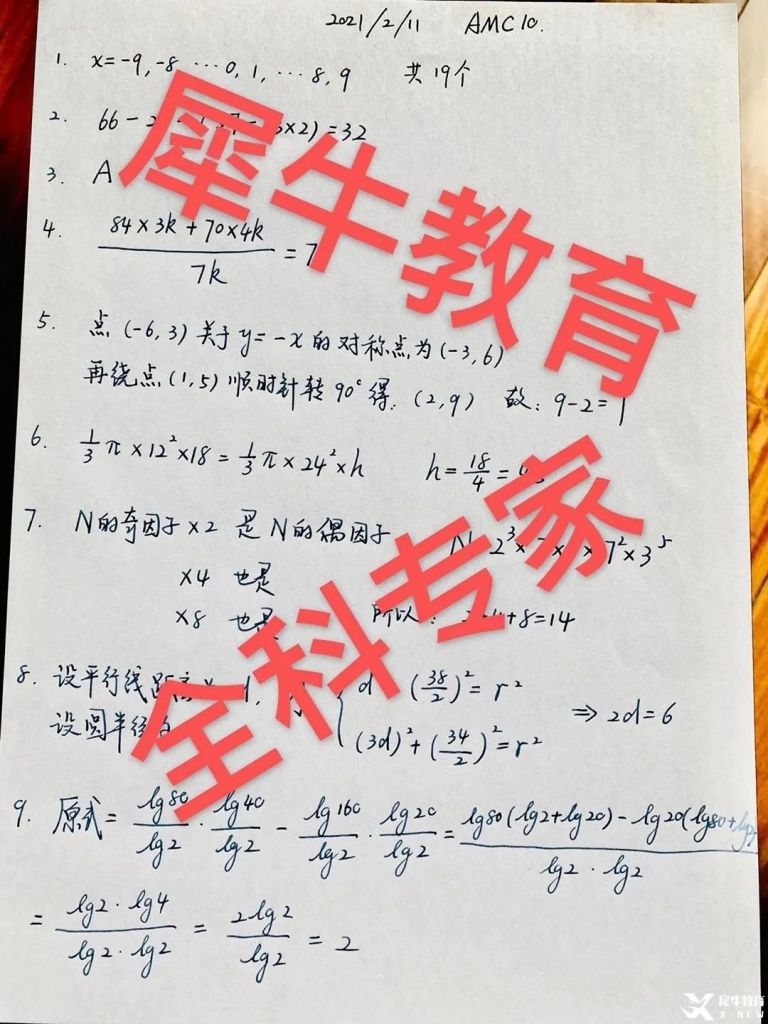 2021/2/11 AMC10.
1. x=-9,-8 ⋯0,1,⋯8,9 共19个
2. 66-2 ×2)=32
3. A
4. (84×3k+70×4k)/7k = 7
5. 点(-6,3)关于y=-x的对称点为(-3,6)
再绕点(1,5)顺时针转90°得:(2,9) 故:9-2=
6. 1/3π×12²×18=1/3π×24²×h h=18/4=4.5
7. N的奇因子×2 是N的偶因子 N 2³× × ×7²×3⁵
×4 也是
×8 也是 所以: +4+8=14
8. 设平行线距离为 d (38/2)²=r²
设圆半径为 (3d)²+(34/2)²=r² ⇒2d=6
9. 原式=lg80/lg2·lg40/lg2-lg160/lg2·lg20/lg2=(lg80(lg2+lg20)-lg20(lg80+lg2)/(lg2·lg2)
=(lg2·lg4)/(lg2·lg2)=2lg2/lg2=2
犀牛教育
全科专家
犀牛教育
X-NEW